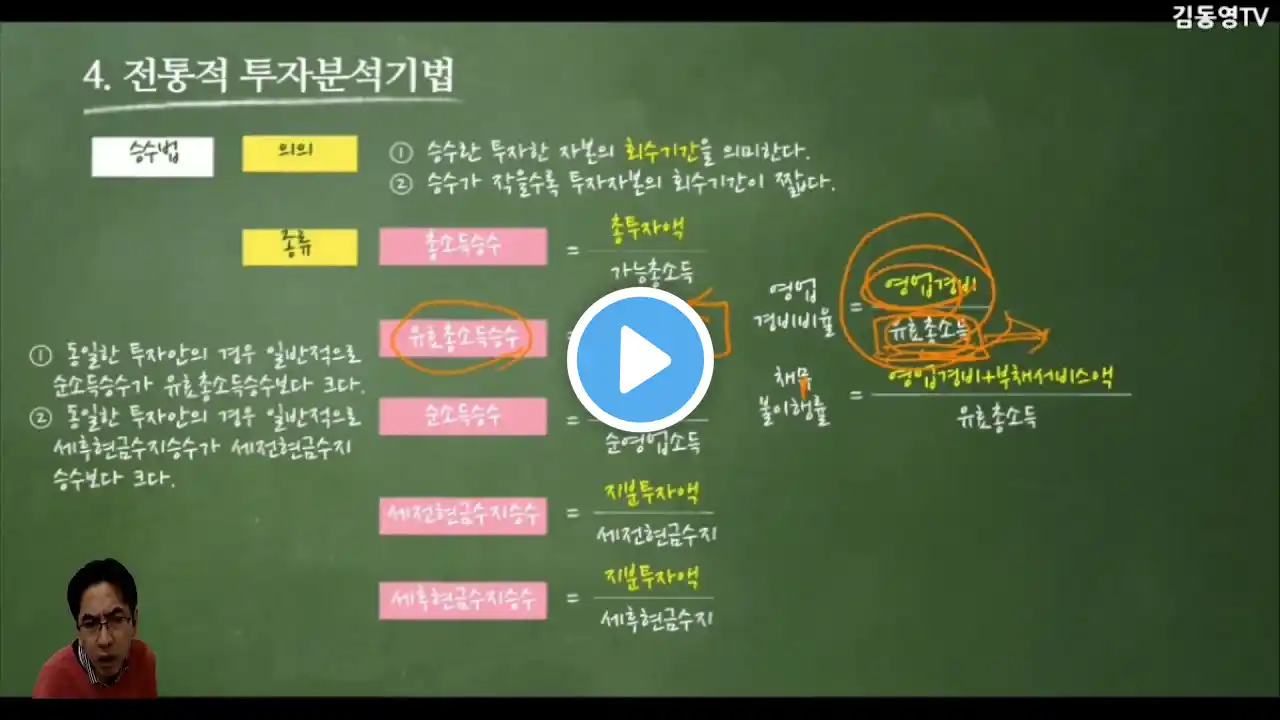 김동영TV
4. 전통적 투자분석기법
승수법
의의
① 승수란 투자한 자본의 회수기간을 의미한다.
② 승수가 작을수록 투자자본의 회수기간이 짧다.
종류
총소득승수
=
총투자액
가능총소득
유효총소득승수
=
순소득승수
=
순영업소득
세전현금수지승수
=
지분투자액
세전현금수지
세후현금수지승수
=
지분투자액
세후현금수지
① 동일한 투자안의 경우 일반적으로
순소득승수가 유효총소득승수보다 크다.
② 동일한 투자안의 경우 일반적으로
세후현금수지승수가 세전현금수지
승수보다 크다.
영업
경비비율
=
영업경비
유효총소득
채무
불이행률
=
영업경비+부채서비스액
유효총소득